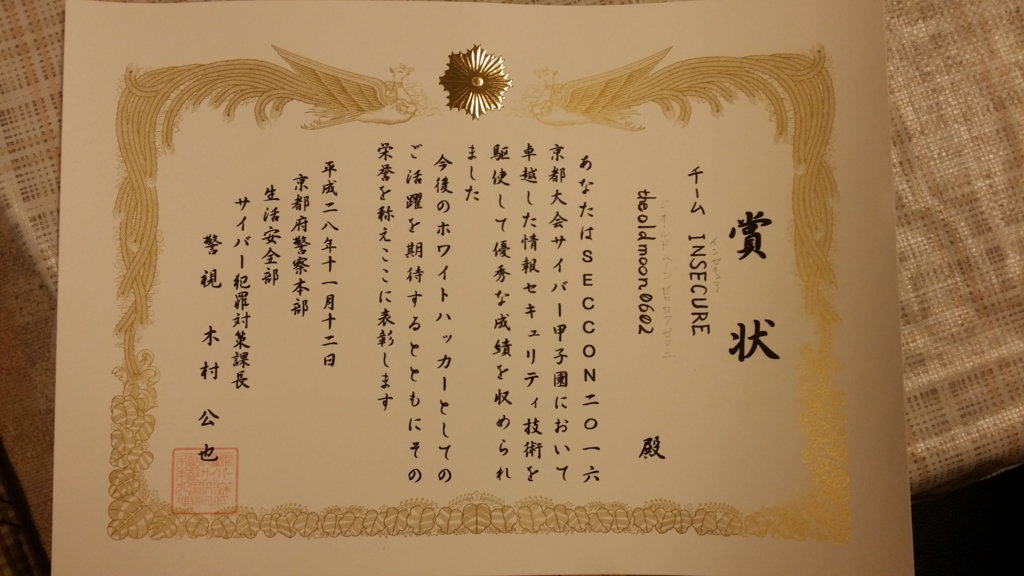 賞状
チーム INSECURE
theoldmoon0602 殿
あなたはSECCON二〇一六
京都大会サイバー甲子園において
卓越した情報セキュリティ技術を
駆使して優秀な成績を収められ
ました
今後のホワイトハッカーとしての
ご活躍を期待するとともにその
栄誉を称えここに表彰します
平成二八年十一月十二日
京都府警察本部
生活安全部
サイバー犯罪対策課長
警視 木村 公也